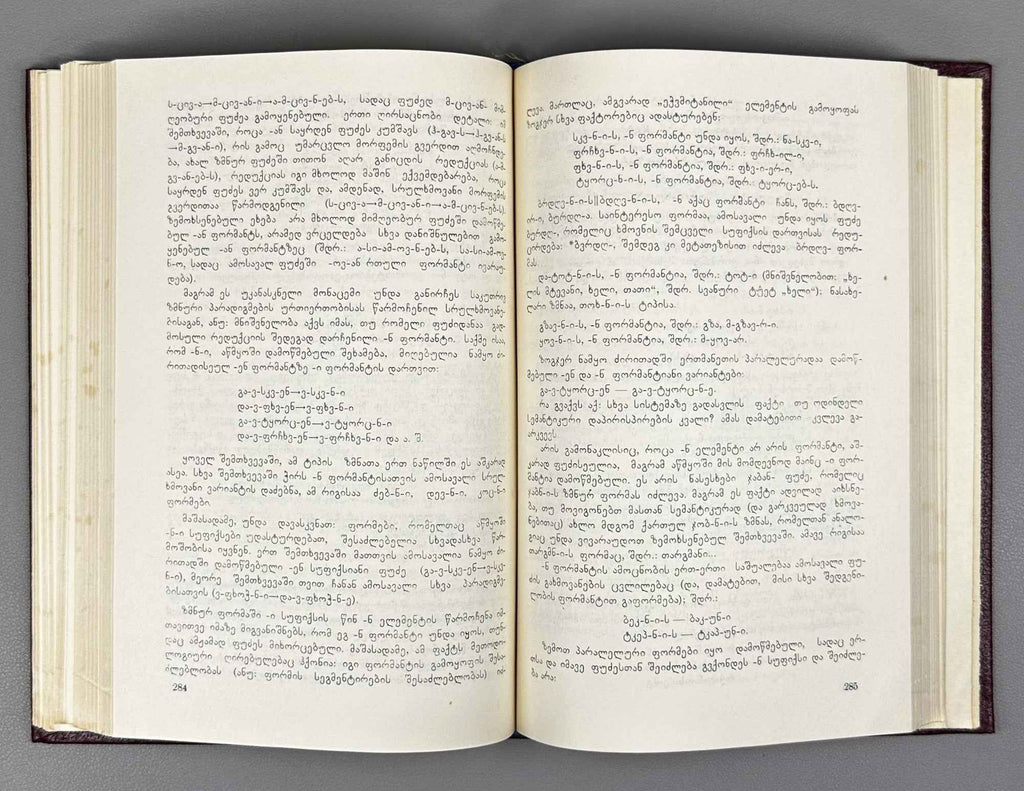 ს-ცივ-ა→მ-ცივ-ან-ი→ა-მ-ცივ-ნ-ებ-ს, სადაც ფუძედ მ-ცივ-ან- მიმ-
ღეობური ფუძეა გამოყენებული. ერთი ღირსაცნობი დეტალი: იმ
შემთხვევაში, როცა -ან საყრდენ ფუძეს კუმშავს (ჰ-გავ-ს→ჰ-გვ-ან-ს
→მ-გვ-ან-ი), რის გამოც უმარცვლო მორფემის გვერდით აღმოჩნდე-
ბა, ახალ ზმნურ ფუძეში თითონ აღარ განიცდის რედუქციას (ა-მ-
გვ-ან-ებ-ს), რედუქციას იგი მხოლოდ მაშინ ექვემდებარება, როცა
საყრდენ ფუძეს ვერ კუმშავს და, ამდენად, სრულხმოვანი მორფემის
გვერდითაა წარმოდგენილი (ს-ცივ-ა→მ-ცივ-ან-ი→ა-მ-ცივ-ნ-ებ-ს).
ზემოხსენებული ეხება არა მხოლოდ მიმღეობურ ფუძეში დამოწმე-
ბულ -ან ფორმანტს, არამედ ვრცელდება სხვა დანიშნულებით გამო-
ყენებულ -ან ფორმანტზეც (შდრ.: ა-სი-ამ-ოვ-ნ-ებ-ს, სა-სი-ამ-ოვ-
ნ-ო, სადაც ამოსავალ ფუძეში -ოვ-ან რთული ფორმანტი ივარაუ-
დება).
მაგრამ ეს უკანასკნელი მონაცემი უნდა განირჩეს საკუთრივ
ზმნური პარადიგმების ურთიერთობისას წარმოჩენილ სრულხმოვანე-
ბისაგან, ანუ: მნიშვნელობა აქვს იმას, თუ რომელი ფუძიდანაა გად-
მოსული რედუქციის შედეგად დარჩენილი -ნ ფორმანტი. საქმე ისაა,
რომ -ნ-ი, აწმყოში დამოწმებული შეხამება, მიღებულია ნამყო ძი-
რითადისეულ -ენ ფორმანტზე -ი ფორმანტის დართვით:
გა-ვ-სკვ-ენ→ვ-სკვ-ნ-ი
და-ვ-ფხვ-ენ→ვ-ფხვ-ნ-ი
გა-ვ-ტყორც-ენ→ვ-ტყორც-ნ-ი
და-ვ-ფრჩხვ-ენ→ვ-ფრჩხვ-ნ-ი და ა. შ.
ყოველ შემთხვევაში, ამ ტიპის ზმნათა ერთ ნაწილში ეს აშკარად
ასეა. სხვა შემთხვევაში ჭირს -ნ ფორმანტისათვის ამოსავალი სრულ-
ხმოვანი ვარიანტის დაძებნა, ამ რიგისაა ძებ-ნ-ი, დევ-ნ-ი, კოც-ნ-ი
ფორმები.
მაშასადამე, უნდა დავასკვნათ: ფორმები, რომელთაც აწმყოში
-ნ-ი სუფიქსები უდასტურდებათ, შესაძლებელია სხვადასხვა წარ-
მოშობისა იყვნენ. ერთ შემთხვევაში მათთვის ამოსავალია ნამყო ძი-
რითადში დამოწმებული -ენ სუფიქსიანი ფუძე (გა-ვ-სკვ-ენ→ვ-სკვ-
ნ-ი), მეორე შემთხვევაში თვით ჩანან ამოსავალი სხვა პარადიგმე-
ბისათვის (ვ-ფხოჭ-ნ-ი→და-ვ-ფხოჭ-ნ-ე).
ზმნურ ფორმაში -ი სუფიქსის წინ -ნ ელემენტის წარმოჩენა იმ-
თავითვე იმაზე მიგვანიშნებს, რომ ეგ -ნ ფორმანტი უნდა იყოს, თუნ-
დაც ამჟამად ფუძეს მიხორცებული. მაშასადამე, ამ ფაქტს მეთოდო-
ლოგიური ღირებულებაც ჰქონია: იგი ფორმანტის გამოყოფის შესა-
ძლებლობას (ანუ: ფორმის სეგმენტირების შესაძლებლობას) იძ-
284
ლევა. მართლაც, ამგვარად „ეჭვმიტანილი“ ელემენტის გამოყოფას
ზოგჯერ სხვა ფაქტორებიც ადასტურებენ:
სკვ-ნ-ი-ს, -ნ ფორმანტი უნდა იყოს, შდრ.: ნა-სკვ-ი,
ფრჩხვ-ნ-ი-ს, -ნ ფორმანტია, შდრ.: ფრჩხ-ილ-ი,
ფხვ-ნ-ი-ს, -ნ ფორმანტია, შდრ.: ფხვ-ი-ერ-ი,
ტყორც-ნ-ი-ს, -ნ ფორმანტია, შდრ.: ტყორც-ებ-ს.
ბრდღვ-ნ-ი-ს||ბდღვ-ნ-ი-ს, -ნ აქაც ფორმანტი ჩანს, შდრ.: ბდღვ-
ირ-ი, ბურდღ-ა. საინტერესო ფორმაა, ამოსავალი უნდა იყოს ფუძე
ბურდღ-, რომელიც ხმოვნის შემცველი სუფიქსის დართვისას რედუ-
ცირდება: *ბვრდღ-, შემდეგ კი მეტათეზისით იძლევა ბრდღვ- ფორ-
მას.
და-ტოტ-ნ-ი-ს, -ნ ფორმანტია, შდრ.: ტოტ-ი (მნიშვნელობით: „ხე-
ლის მტევანი, ხელი, თათი“, შდრ. სვანური „ხელი“); ნასახე-
ლარი ზმნაა, თოხ-ნ-ი-ს ტიპისა.
გზავ-ნ-ი-ს, -ნ ფორმანტია, შდრ.: გზა, მ-გზავ-რ-ი.
ყოვ-ნ-ი-ს, -ნ ფორმანტია, შდრ.: მ-ყოვ-არ.
ზოგჯერ ნამყო ძირითადში ერთმანეთის პარალელურადაა დამოწ-
მებული -ენ და -ნ ფორმანტიანი ვარიანტები:
გა-ვ-ტყორც-ენ — გა-ვ-ტყორც-ნ-ე.
რა გვაქვს აქ: სხვა სისტემაზე გადასვლის ფაქტი თუ ოდინდელი
სემანტიკური დაპირისპირების კვალი? ამას დამატებითი კვლევა გა-
არკვევს.
არის გამონაკლისიც, როცა -ნ ელემენტი არ არის ფორმანტი, აშ-
კარად ფუძისეულია, მაგრამ აწმყოში მის მომდევნოდ მაინც -ი ფორ-
მანტია დამოწმებული. ეს არის ნასესხები ჯაბან- ფუძე, რომელიც
ჯაბნ-ი-ს ზმნურ ფორმას იძლევა. მაგრამ ეს ფაქტი ადვილად აიხსნე-
ბა, თუ მოვიგონებთ მასთან სემანტიკურად (და გარკვეულად ხმოვა-
ნებითაც) ახლო მდგომ ქართულ ჯობ-ნ-ი-ს ზმნას, რომელთან ანალო-
გიაც უნდა ვივარაუდოთ ზემოხსენებულ შემთხვევაში. ამავე რიგისაა
თარგმნ-ი-ს ფორმაც, შდრ.: თარგმანი...
-ნ ფორმანტის ამოცნობის ერთ-ერთი საშუალებაა ამოსავალი ფუ-
ძის გახმოვანების ცვლილებაც (და, დამატებით, მისი სხვა შედგენი-
ლობის ფორმანტით გაფორმება); შდრ.:
ბეკ-ნ-ი-ს — ბაკ-უნ-ი
ტკეპ-ნ-ი-ს — ტკაპ-უნ-ი.
ზემოთ პარალელური ფორმები იყო დამოწმებული, სადაც ერ-
თსა და იმავე ფუძესთან შეიძლება გვქონდეს -ნ სუფიქსი და შეიძლე-
ბა არა:
285